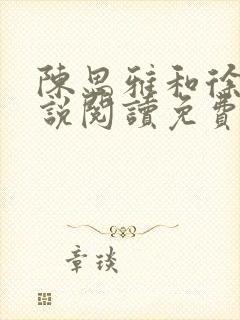 陳思雅和徐
說閱讀免費
章琰